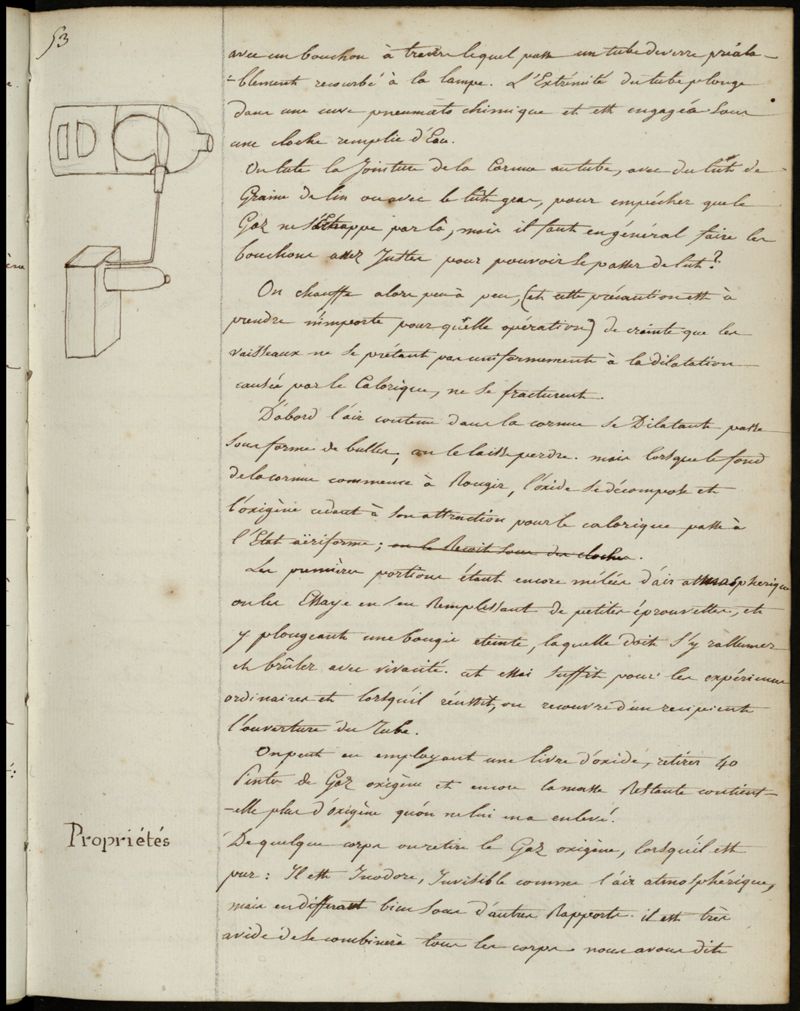 53
avec un bouchon à travers lequel passe un tube de verre préala-
-blement recourbé à la lampe. L'Extrémité du tube plonge
dans une cuve pneumato chimique et est engagée Sous
une cloche remplie d'Eau.
On lute la Jointure de la Cornue au tube, avec du lut de
Graine de lin ou avec le lut gras, pour empécher que le
Gaz ne s'Echappe par là, mais il faut en général faire les
bouchons assez Justes pour pouvoir se passer de lut.
On chauffe alors peu à peu, (et cette précaution est à
prendre n'importe pour quelle opération) de crainte que les
vaisseaux ne se prétant pas uniformement à la dilatation
causée par le Calorique, ne se fracturent.
D'abord l'air contenu dans la cornue se Dilatant passe
sous forme de bulles, on le laisse perdre. mais lorsque le fond
de la cornue commence à Rougir, l'oxide se décompose et
l'oxigène cédant à son attraction pour le calorique passe à
l'Etat aëriforme; on le Recoit sous des cloches.
Les premières portions étant encore mélées d'air atmospherique
on les Essaye en en Remplissant de petites éprouvettes, et
y plongeant une bougie eteinte, laquelle doit s'y rallumer
et brûler avec vivacité. cet essai suffit pour les expériences
ordinaires et lorsqu'il réussit, on recouvre d'un recipient
l'ouverture du Tube.
On peut en employant une livre d'oxide, retirer 40
Pintes de Gaz oxigène et encore la masse Restante contient-
-elle plus d'oxigène qu'on ne lui en a enlevé.
Propriétés
De quelque corps on retire le Gaz oxigène, lorsqu'il est
pur: Il est Inodore, Invisible comme l'air atmosphérique,
mais en différant bien sous d'autres Rapports. il est très
avide de se combiner à tous les corps. nous avons dit